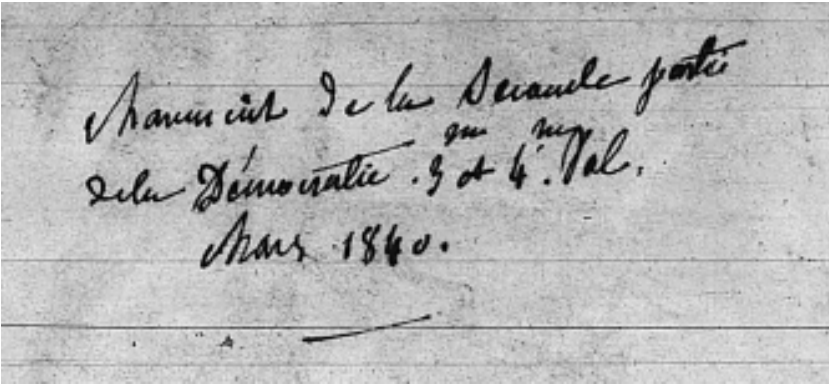 Manuscrit de la Seconde partie
de la Démocratie. 3me et 4me. Vol.
Mars 1840.